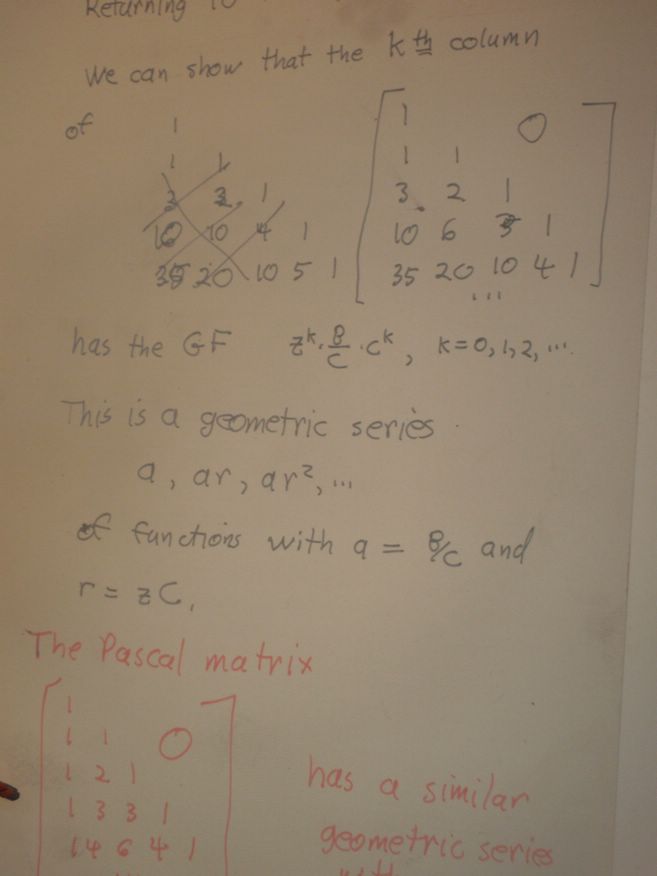 Returning to
We can show that the kth column
of
1
1 1
3 3 1
10 10 4 1
35 20 10 5 1
1 0
1 1
3 2 1
10 6 3 1
35 20 10 4 1
...
has the GF z^k · B/C · C^k, k=0,1,2,...
This is a geometric series
a, ar, ar², ...
of functions with a = B/C and
r = zC.
The Pascal matrix
1
1 1 0
1 2 1
1 3 3 1
1 4 6 4 1
has a similar
geometric series
with